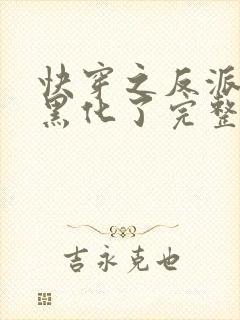 快穿之反派
黑化了完整
吉永克也